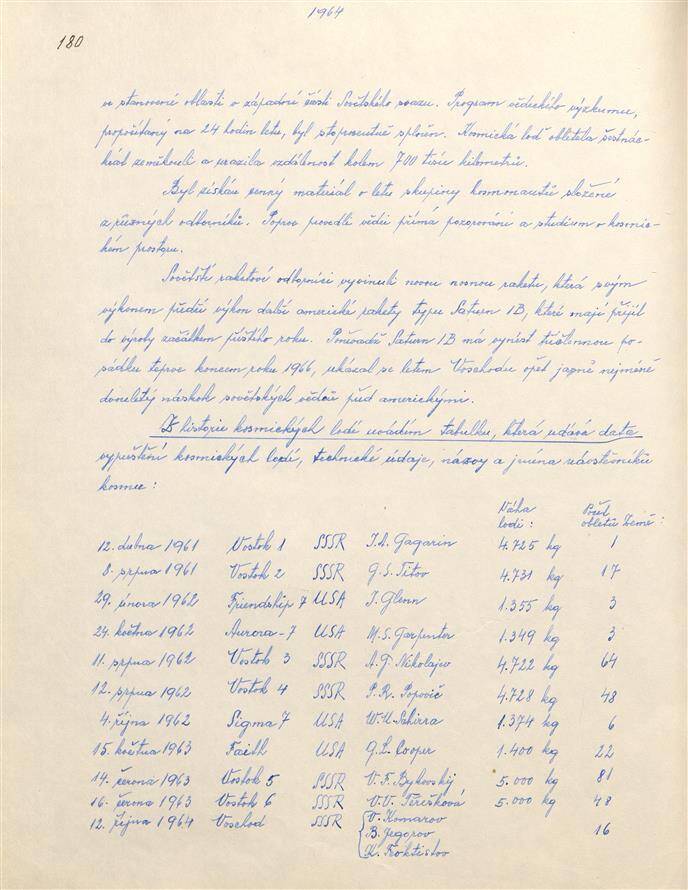 1964
180
ve stanovené oblasti v západní části Sovětského svazu. Program vědeckého výzkumu,
propočítaný na 24 hodin letu, byl stoprocentně splněn. Kosmická loď obletěla šestnác-
krát zeměkouli a urazila vzdálenost kolem 700 tisíc kilometrů.
Byl získán cenný materiál o letu skupiny kosmonautů složené
z různých odborníků. Poprve provedli vědci přímá pozorování a studium v kosmic-
kém prostoru.
Sovětští raketoví odborníci vyvinuli novou nosnou raketu, která svým
výkonem předčí výkon další americké rakety typu Saturn 1B, které mají přijít
do výroby začátkem příštího roku. Poněvadž Saturn 1B má vynést tříčlennou po-
sádku teprve koncem roku 1966, ukázal se letem Voschodu opět jasně nejméně
dvouletý náskok sovětských vědců před americkými.
Z historie kosmických lodí uvádím tabulku, která udává data
vypuštění kosmických lodí, technické údaje, názvy a jména účastníků
kosmu:
Váha lodi: Počet obletů Země:
12. dubna 1961 Vostok 1 SSSR J.A. Gagarin 4.725 kg 1
8. srpna 1961 Vostok 2 SSSR G.S. Titov 4.731 kg 17
29. února 1962 Friendship 7 USA J. Glenn 1.355 kg 3
24. května 1962 Aurora-7 USA M.S. Carpenter 1.349 kg 3
11. srpna 1962 Vostok 3 SSSR A.G. Nikolajev 4.722 kg 64
12. srpna 1962 Vostok 4 SSSR P.R. Popovič 4.728 kg 48
4. října 1962 Sigma 7 USA W.M. Schirra 1.374 kg 6
15. května 1963 Faith USA G.L. Cooper 1.400 kg 22
14. června 1963 Vostok 5 SSSR V.F. Bykovský 5.000 kg 81
16. června 1963 Vostok 6 SSSR V.V. Těrešková 5.000 kg 48
12. října 1964 Voschod SSSR V. Komarov
B. Jegorov 16
K. Feoktistov